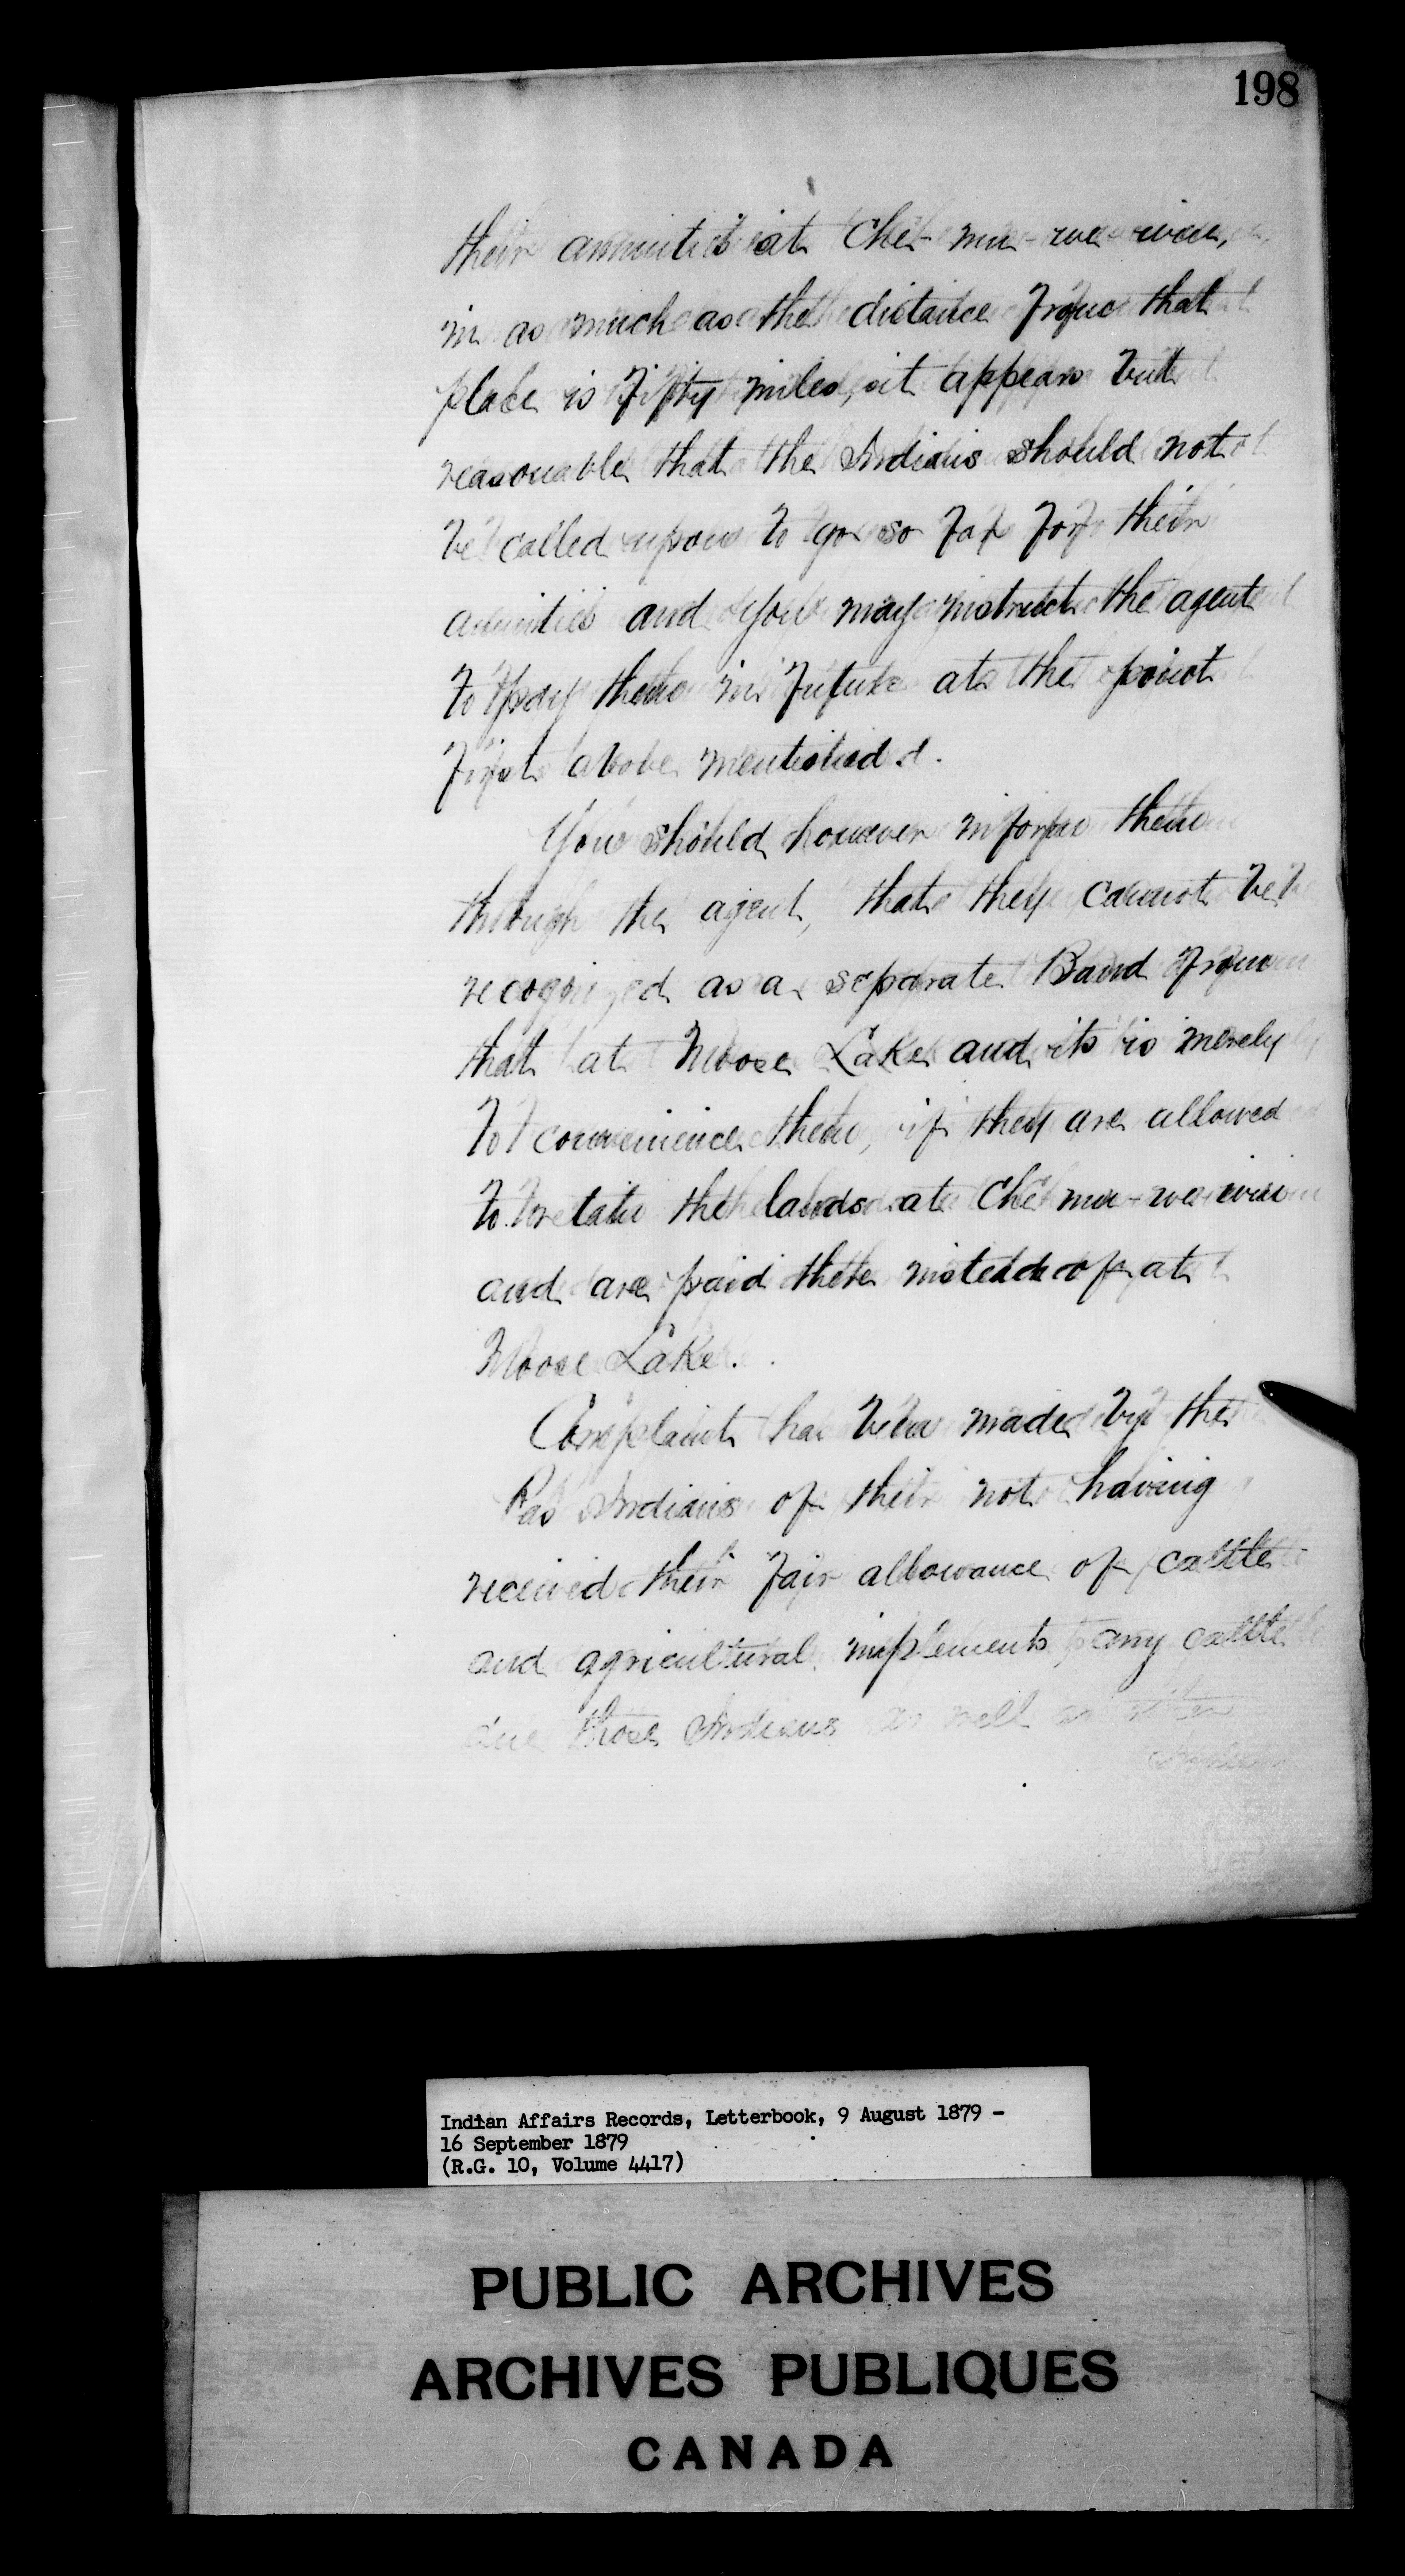 198
their annuities at Che-mu-wa-win,
in as much as the distance from that
place is fifty miles, it appears but
reasonable that the Indians should not
be called upon to go so far for their
annuities and you may instruct the agent
to pay them in future at the point
first above mentioned.
You should however inform them
through the agent, that they cannot be
recognized as a separate Band from
that at Moose Lake and it is merely
to convenience them, if they are allowed
to retain the lands at Che mu-wa-win
and are paid there instead of at
Moose Lake.
Complaint has been made by the
Pas Indians of their not having
received their fair allowance of cattle
and agricultural implements, any cattle
due those Indians as well as other
Indian Affairs Records, Letterbook, 9 August 1879 –
16 September 1879
(R.G. 10, Volume 4417)
PUBLIC ARCHIVES
ARCHIVES PUBLIQUES
CANADA